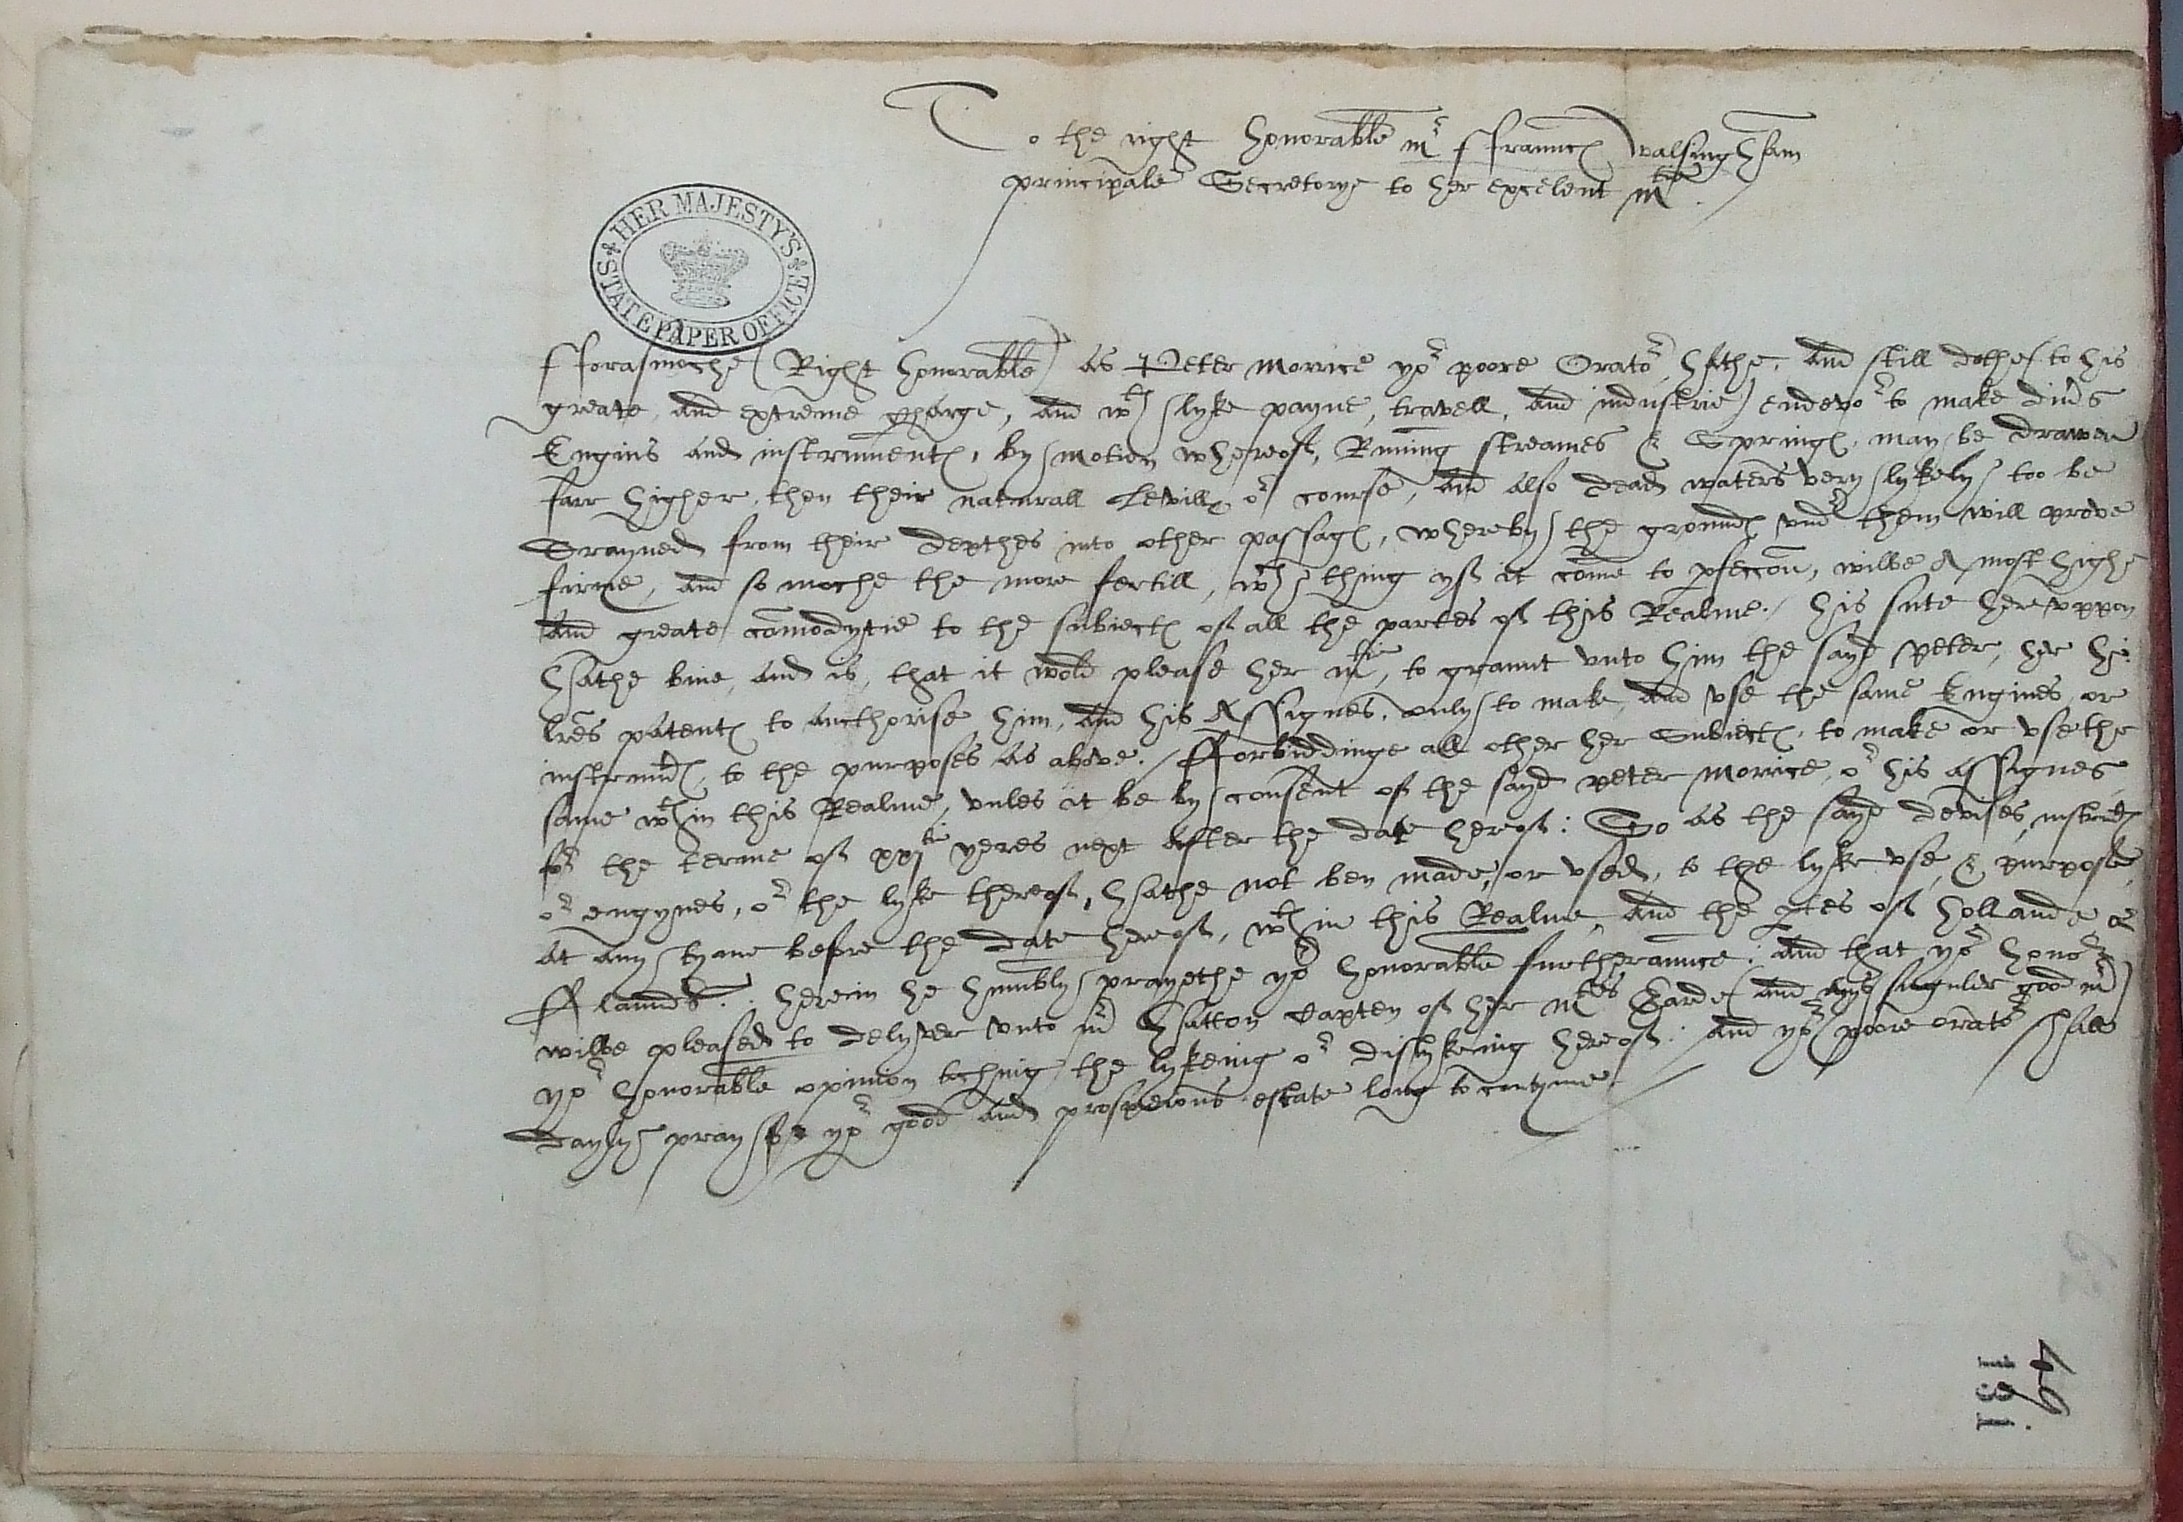 To the right honorable mr ffrannc walsingham
principale Secretorye to her excelent matie
HER MAJESTY'S
STATE PAPER OFFICE
fforasmoche (Right honorable) as Peter Morrice yor poore Orator, hathe, and still dothe (to his
greate, and extreme charge, and wth lyke payne, travell, and industrie) endevor to make div's
Engins and instrument, by motion whereof, Runing streames & Spring, may be drawen
farr higher, then their naturall Levill or course, and also dead waters very lykely too be
Drayned from their depthes into other passag, whereby the ground vnder them will prove
firme, and so moche the more fertill, wch thing yf it come to pfeccon, wilbe A most highe
and greate comodytie to the subiect of all the partes of this Realme. / his sute herevppon
hathe bine, and is, that it wold please her matie, to graunt vnto him the sayd Peter, her hi:
lres patent to aucthorise him, and his Assignes, only to make, and vse the same Engines, or
instrumt, to the purposes as above. / fforbiddinge all other her Subiect, to make or vse the
same wthin this Realme, vnles it be by consent of the sayd Peter Morrice, or his Assignes,
for the terme of xxjtie yeres next after the date hereof: So as the sayd devises, instrumt
or engynes, or the lyke thereof, hathe not ben made, or vsed, to the lyke vse, & purpose,
at any tyme before the date hereof, wthin this Realme, and the ptes of hollande &
fflaunders. : herein he humbly prayethe yor honorable furtheraunce: and that yor honor
wilbe pleased to delyver vnto mr hatton Capten of her mtes Garde (and my singuler good mr)
yor honorable opinion tochinge the lykeing or dislykeing hereof. / and yor poore orator shall
dayly pray for yor good and prosperous estate long to contynue.
49.
131